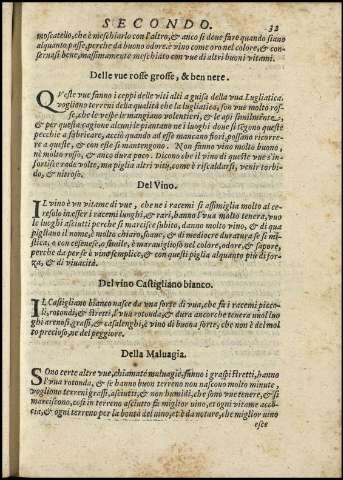 SECONDO. 32
moscatello, che è meschiarlo con l'altro, & anco si deue fare quando siano
alquanto passe, perche da buono odore. è vino come oro nel colore, & con-
seruasi bene, massimamente meschiato con vue di altri buoni vitami.
Delle vue rosse grosse, & ben nere.
QVeste vue fanno i ceppi delle viti alti a guisa della vua Lugliatica.
vogliono terreni della qualità che la lugliatica, son vue molto ros-
se, che le vespe le mangiano volentieri, & le api similmente,
& per questa cagione alcuni le piantano ne i luoghi doue si segono queste
pecchie a fabricare, acciò quando ad esse mancano fiori, possano ricorre-
re a queste, & con esse si mantengono. Non fanno vino molto buono,
nè molto roso, & anco dura poco. Dicono che il vino di queste vue s'in-
fortisce rade volte, ma piglia altri vitij, come è riscaldarsi, venir torbi-
do, & nitroso.
Del Vino.
IL vino è vn vitame di vue, che ne i racemi si assimiglia molto al ce-
resolo in esser i racemi luoghi, & rari, hanno l'vua molto tenera, vuo
le luoghi asciutti perche si marcisce subito, danno molto vino, & di qua
pigliano il nome, è molto chiaro, soaue, & di mediocre durata se si mi-
stica, o con cesenese, o simile, è marauiglioso nel colore, odore, & sapore,
perche da per se è vino semplice, & con questi piglia alquanto più di for-
za, & di viuacità.
Del vino Castigliano bianco.
IL Castigliano bianco nasce da vna sorte di vua, che fà i racemi picco-
li, rotondi, & stretti, l'vua rotonda, & dura ancorche tenera vuol luo
ghi arenosi grassi, & casalenghi, è vino di buona sorte, che non è del mol
to precioso, ne del peggiore.
Della Maluagia.
SOno certe altre vue, chiamate maluagie, fanno i graspi stretti, hanno
l'vua rotonda, & se hanno buon terreno non nascono molto minute,
vogliono terreni grassi, asciutti, & non humidi, che sono vue tenere, & si
marciscono, così in terreno asciutto fà miglior vino, et ogni vitame acco-
cia, & ogni terreno per la bontà del vino, et è da notare, che miglior vino
esce